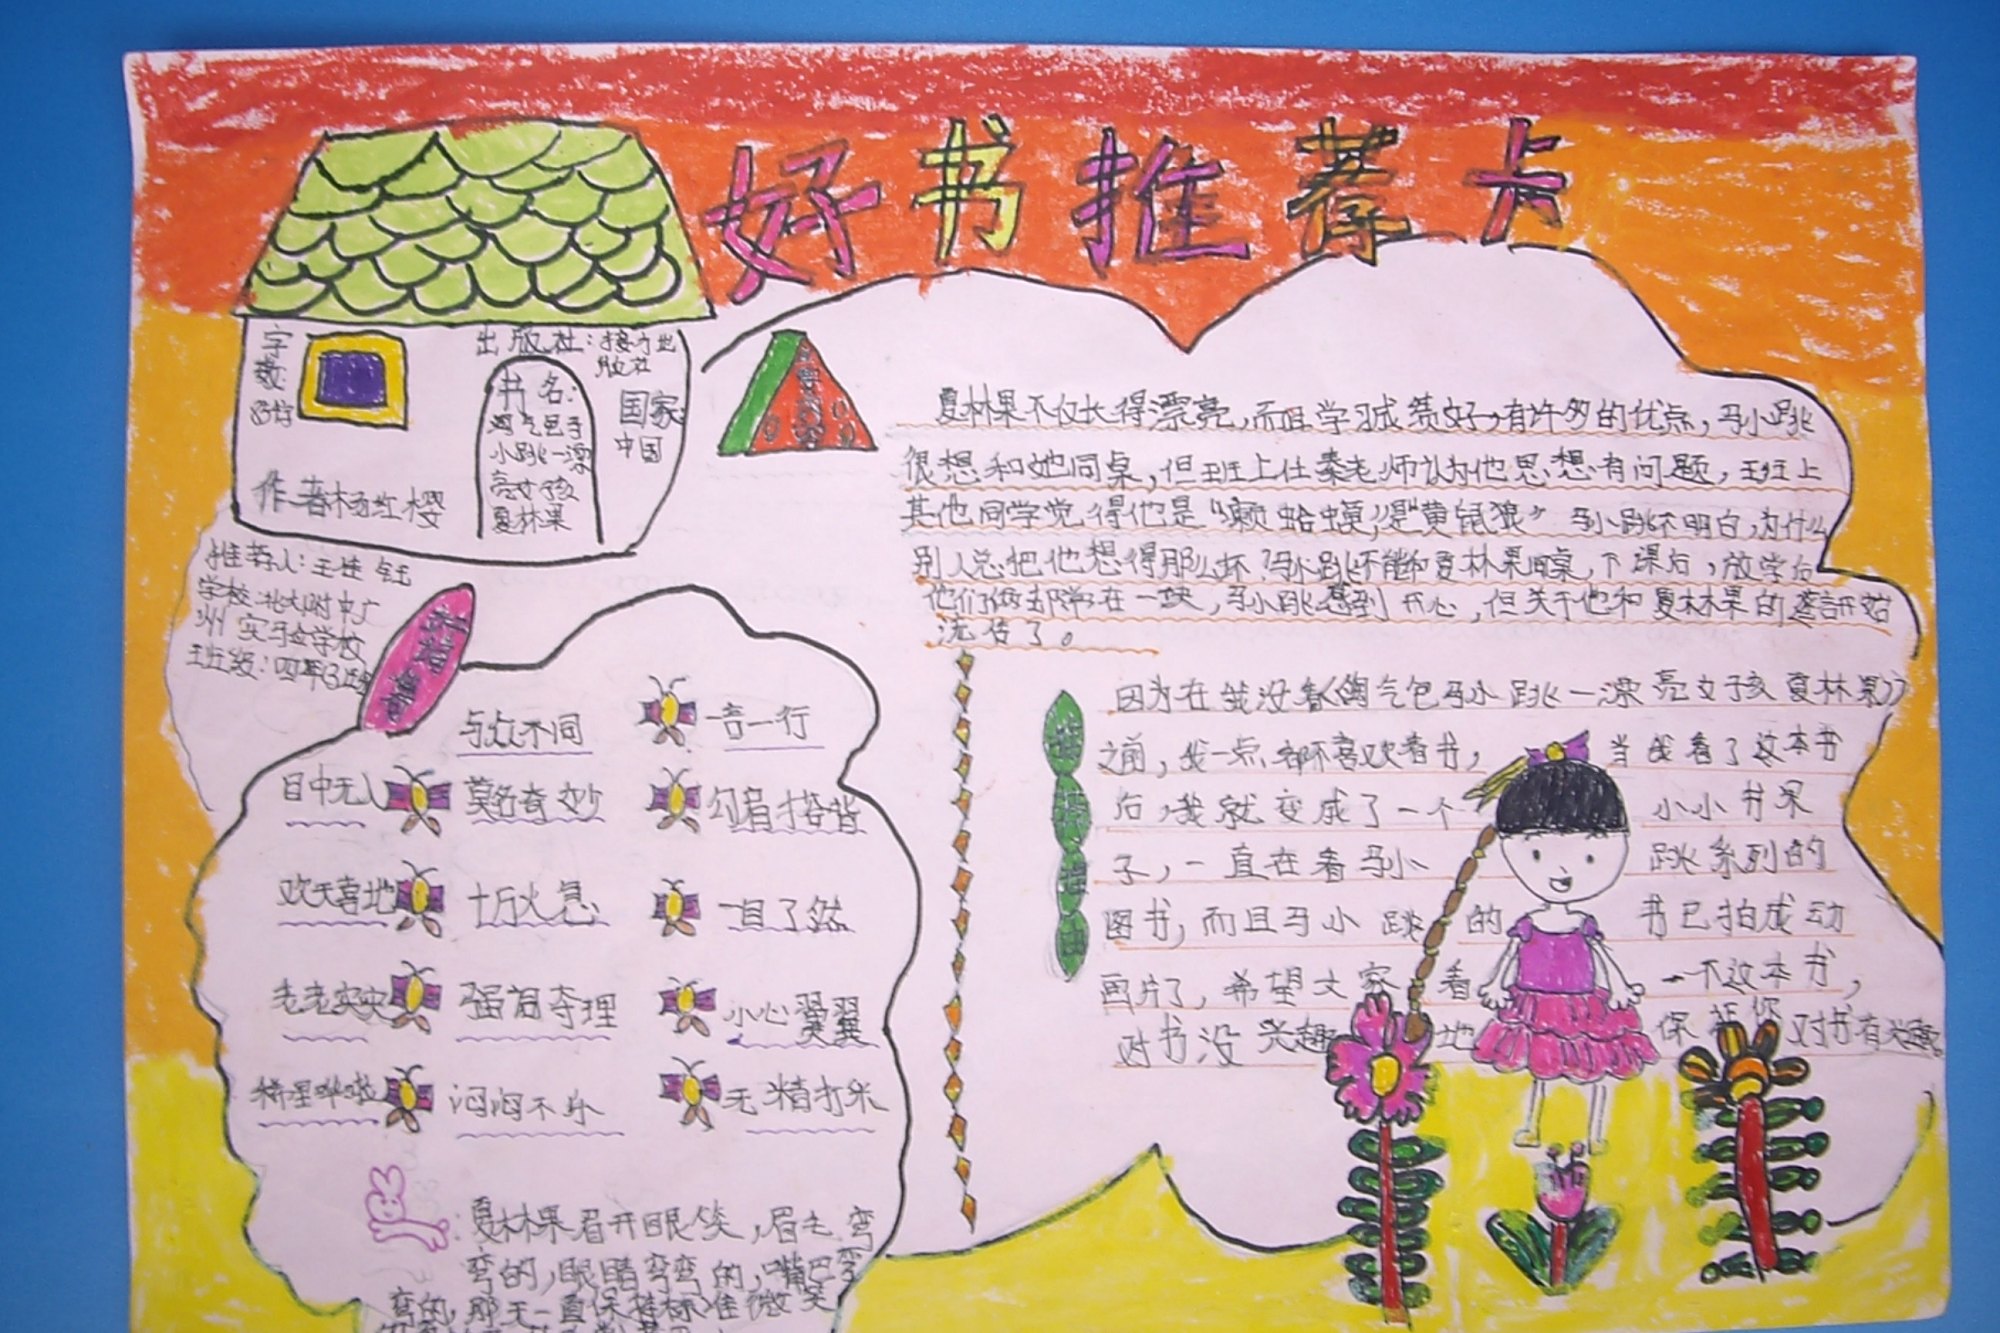 好书推荐卡
字
数:
出版社:接力出
版社
书名:
淘气包马
小跳一漂
亮女孩
夏林果
国家
中国
作者杨红樱
推荐人:王佳钰
学校:北大附中广
州实习验学校
班级:四年
与众不同
一言一行
目中无人
莫名奇妙
勾肩搭背
欢天喜地
十万火急
一目了然
老老实实
强词夺理
小心翼翼
稀里哗啦
闷闷不乐
无精打采
夏林果眉开眼笑,眉毛弯
弯的,眼睛弯弯的,嘴巴弯
弯的,那天一直保持标准微笑
夏林果不仅长得漂亮,而且学习成绩好,有许多的优点,马小跳
很想和她同桌,但班上任秦老师认为他思想有问题,班上
其他同学觉得他是“癞蛤蟆”,是“黄鼠狼”马小跳不明白,为什么
别人总把他想得那么坏?马小跳不能和夏林果同桌,下课后,放学后
他们俩却常在一块,马小跳感到开心,但关于他和夏林果的谣言开始
流传了。
因为在我没看《淘气包马小跳一漂亮女孩夏林果》
之前,我一点都不喜欢看书,当我看了这本书
后,我就变成了一个小小书果
子,一直在看马小跳系列的
图书,而且马小跳的书已拍成动
画片了,希望大家看一下这本书,
对书没兴趣地保证你对书有兴趣。